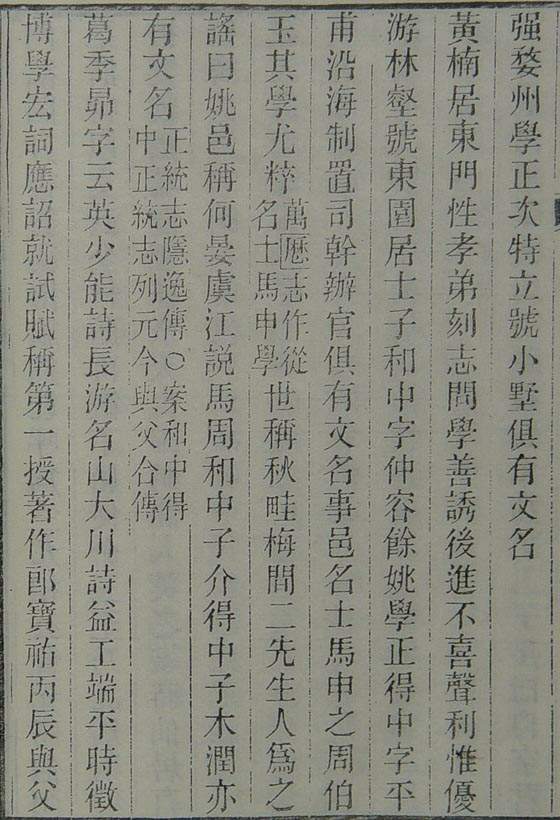 强婺州學正次特立號小墅俱有文名
黃楠居東門性孝弟刻志問學善誘後進不喜聲利惟優
游林壑號東園居士子和中字仲容餘姚學正得中字平
甫沿海制置司幹辦官俱有文名事邑名士馬申之周伯
玉其學尤粹萬厯志作從名士馬申學世稱秋畦梅間二先生人爲之
謠曰姚邑稱何晏虞江説馬周和中子介得中子木潤亦
有文名正統志隱逸傳○案和中得中正統志列元今與父合傳
葛季昴字云英少能詩長游名山大川詩益工端平時徵
博學宏詞應詔就試賦稱第一授著作郎寶祐丙辰與父